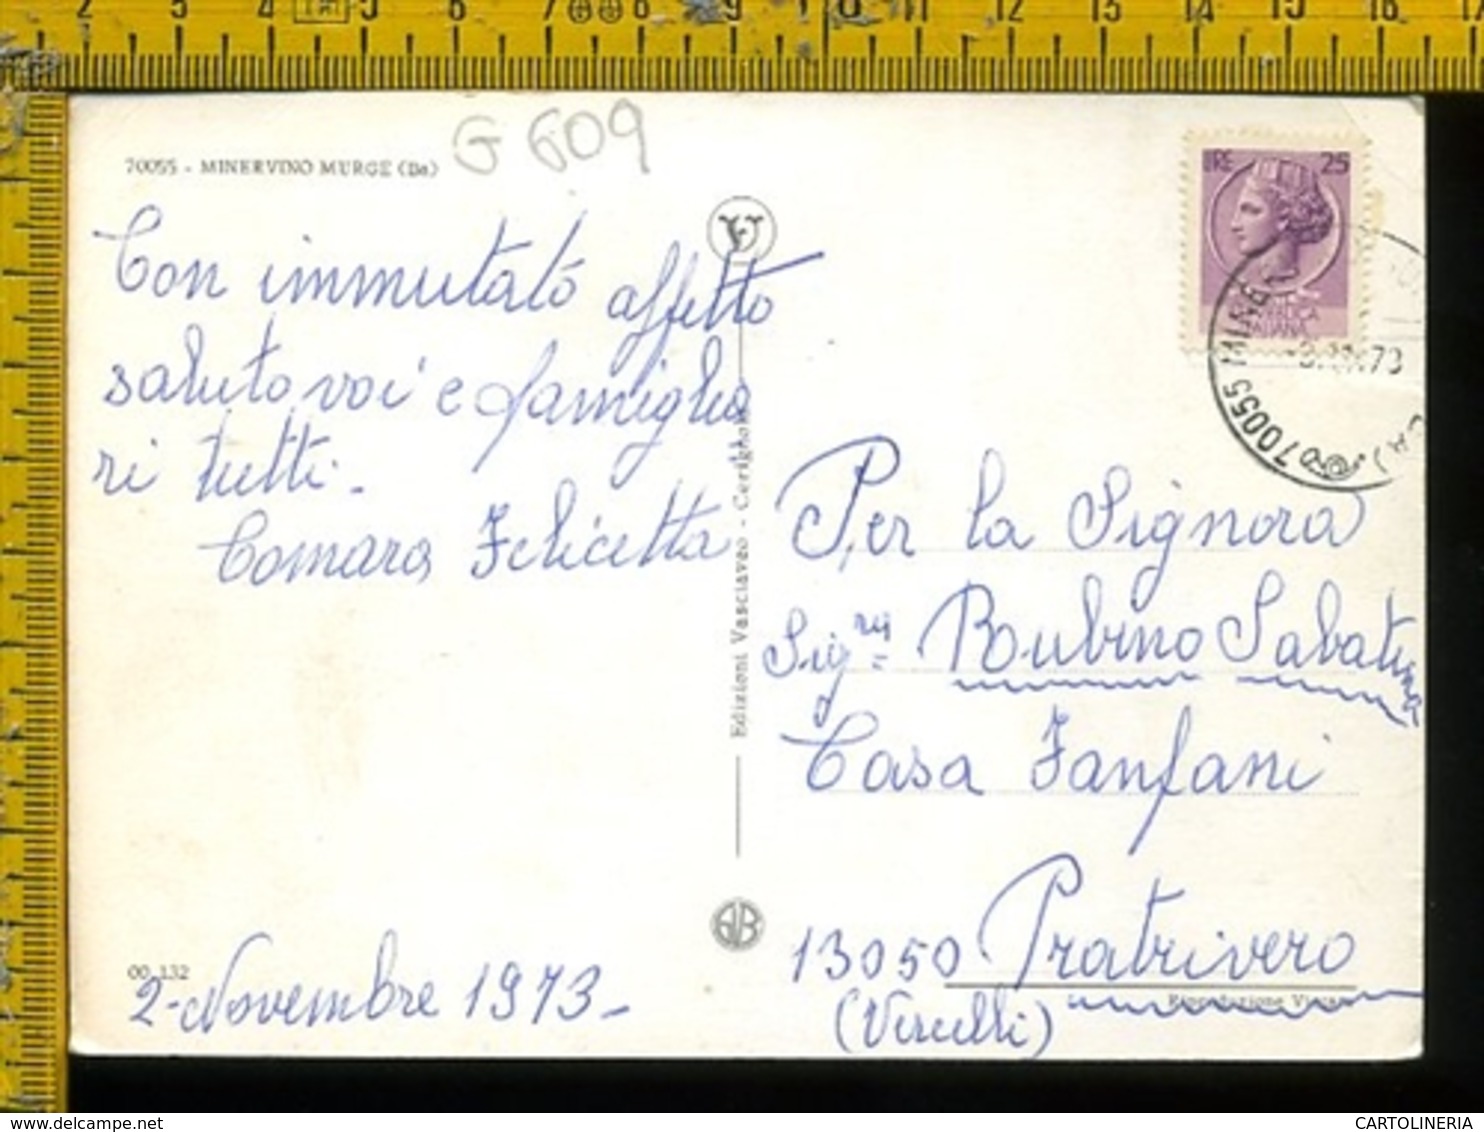 2 3 4 5 6 7 8 9 10 11 12 13 14 15 16 17
G 609
70055 - MINERVINO MURGE (Ba)
LIRE 25
REPUBBLICA
ITALIANA
70055 MINE
73
Con immutato affetto
saluto voi e famiglia
ri tutti.
Comara Felicetta
Edizioni Vasciaveo - Cerignola
Per la Signora
Sig.ra Rubino Sabatina
Casa Fanfani
13050 Pratrivero
(Vercelli)
Riproduzione Vietata
00 132
2 - Novembre 1973 -
delcampe.net
CARTOLINERIA